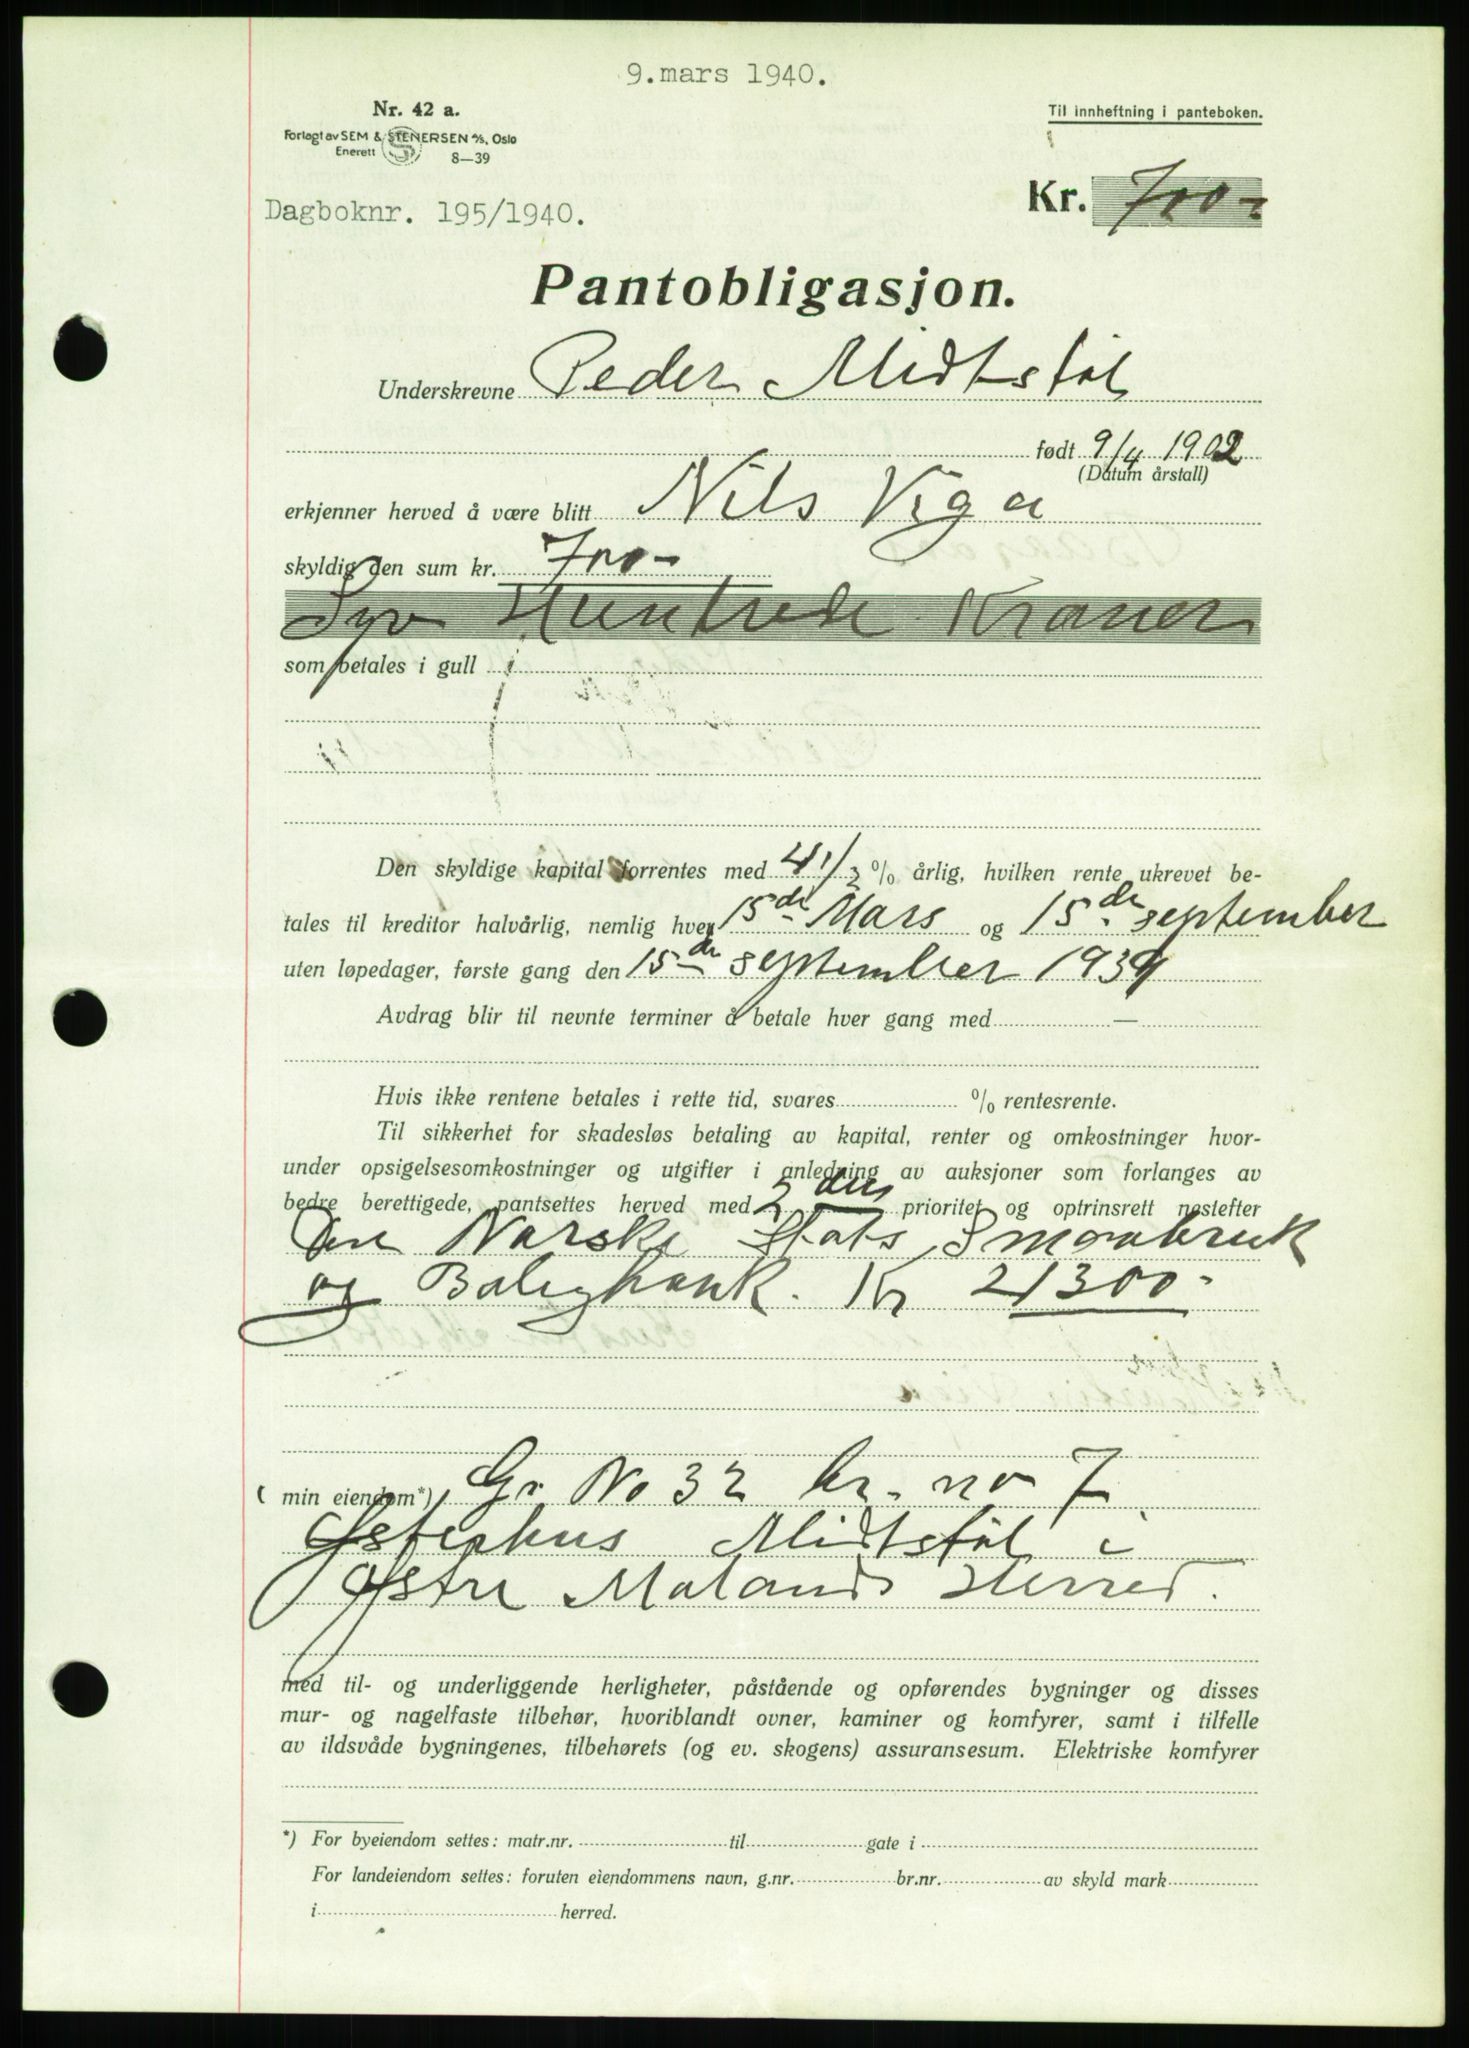 9.mars 1940.
Nr. 42 a.
Til innheftning i panteboken.
Forlagt av SEM & STENERSEN A/S, Oslo
Enerett 8—39
Kr. 700-
Dagboknr. 195/1940.
Pantobligasjon.
Underskrevne Peder Midtstøl
født 9/4 1902
(Datum årstall)
erkjenner herved å være blitt Nils Viga
skyldig den sum kr. 700-
Syv Hundrede Kroner
som betales i gull
Den skyldige kapital forrentes med 4 1/2 % årlig, hvilken rente ukrevet be-
tales til kreditor halvårlig, nemlig hver 15de Mars og 15de september
uten løpedager, første gang den 15de september 1939
Avdrag blir til nevnte terminer å betale hver gang med —
Hvis ikke rentene betales i rette tid, svares % rentesrente.
Til sikkerhet for skadesløs betaling av kapital, renter og omkostninger hvor-
under opsigelsesomkostninger og utgifter i anledning av auksjoner som forlanges av
bedre berettigede, pantsettes herved med 2 den prioritet og optrinsrett nestefter
Den Norske Stats Småabruk
og Boligbank. Kr 21300-
( min eiendom*) Gr. No 32 br. no 7
Østerhus Midtstøl i
Østre Moland Herred.
med til- og underliggende herligheter, påstående og opførendes bygninger og disses
mur- og nagelfaste tilbehør, hvoriblandt ovner, kaminer og komfyrer, samt i tilfelle
av ildsvåde bygningenes, tilbehørets (og ev. skogens) assuransesum. Elektriske komfyrer
*) For byeiendom settes: matr.nr. til gate i
For landeiendom settes: foruten eiendommens navn, g.nr. br.nr. av skyld mark
i herred.